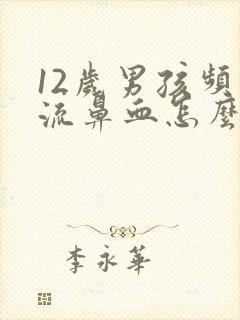 12歲男孩頻
流鼻血怎麼
李永華